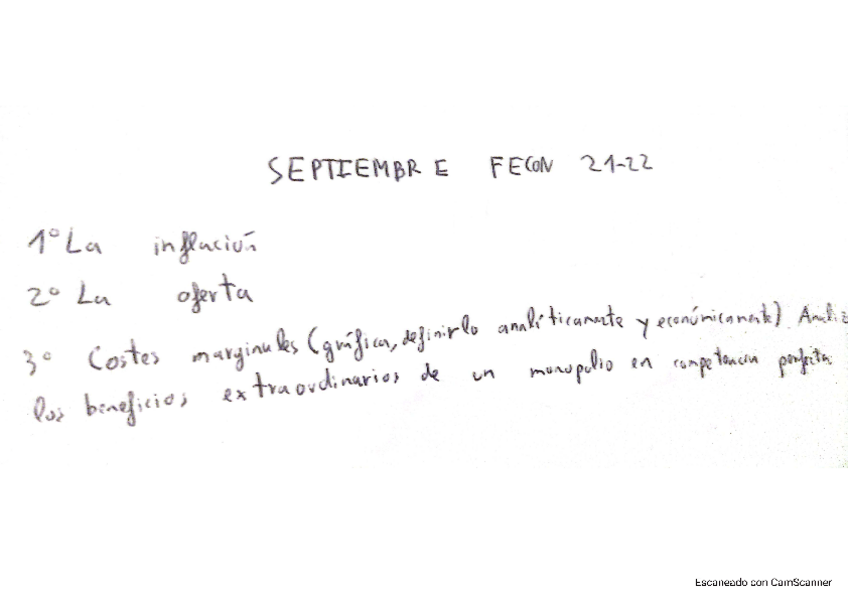 SEPTIEMBRE FECON 21-22
1º La inflación
2º La oferta
3º Costes marginales (gráfica, definirlo analíticamente y económicamente) Analiz
los beneficios extraordinarios de un monopolio en competencia perfecta
Escaneado con CamScanner